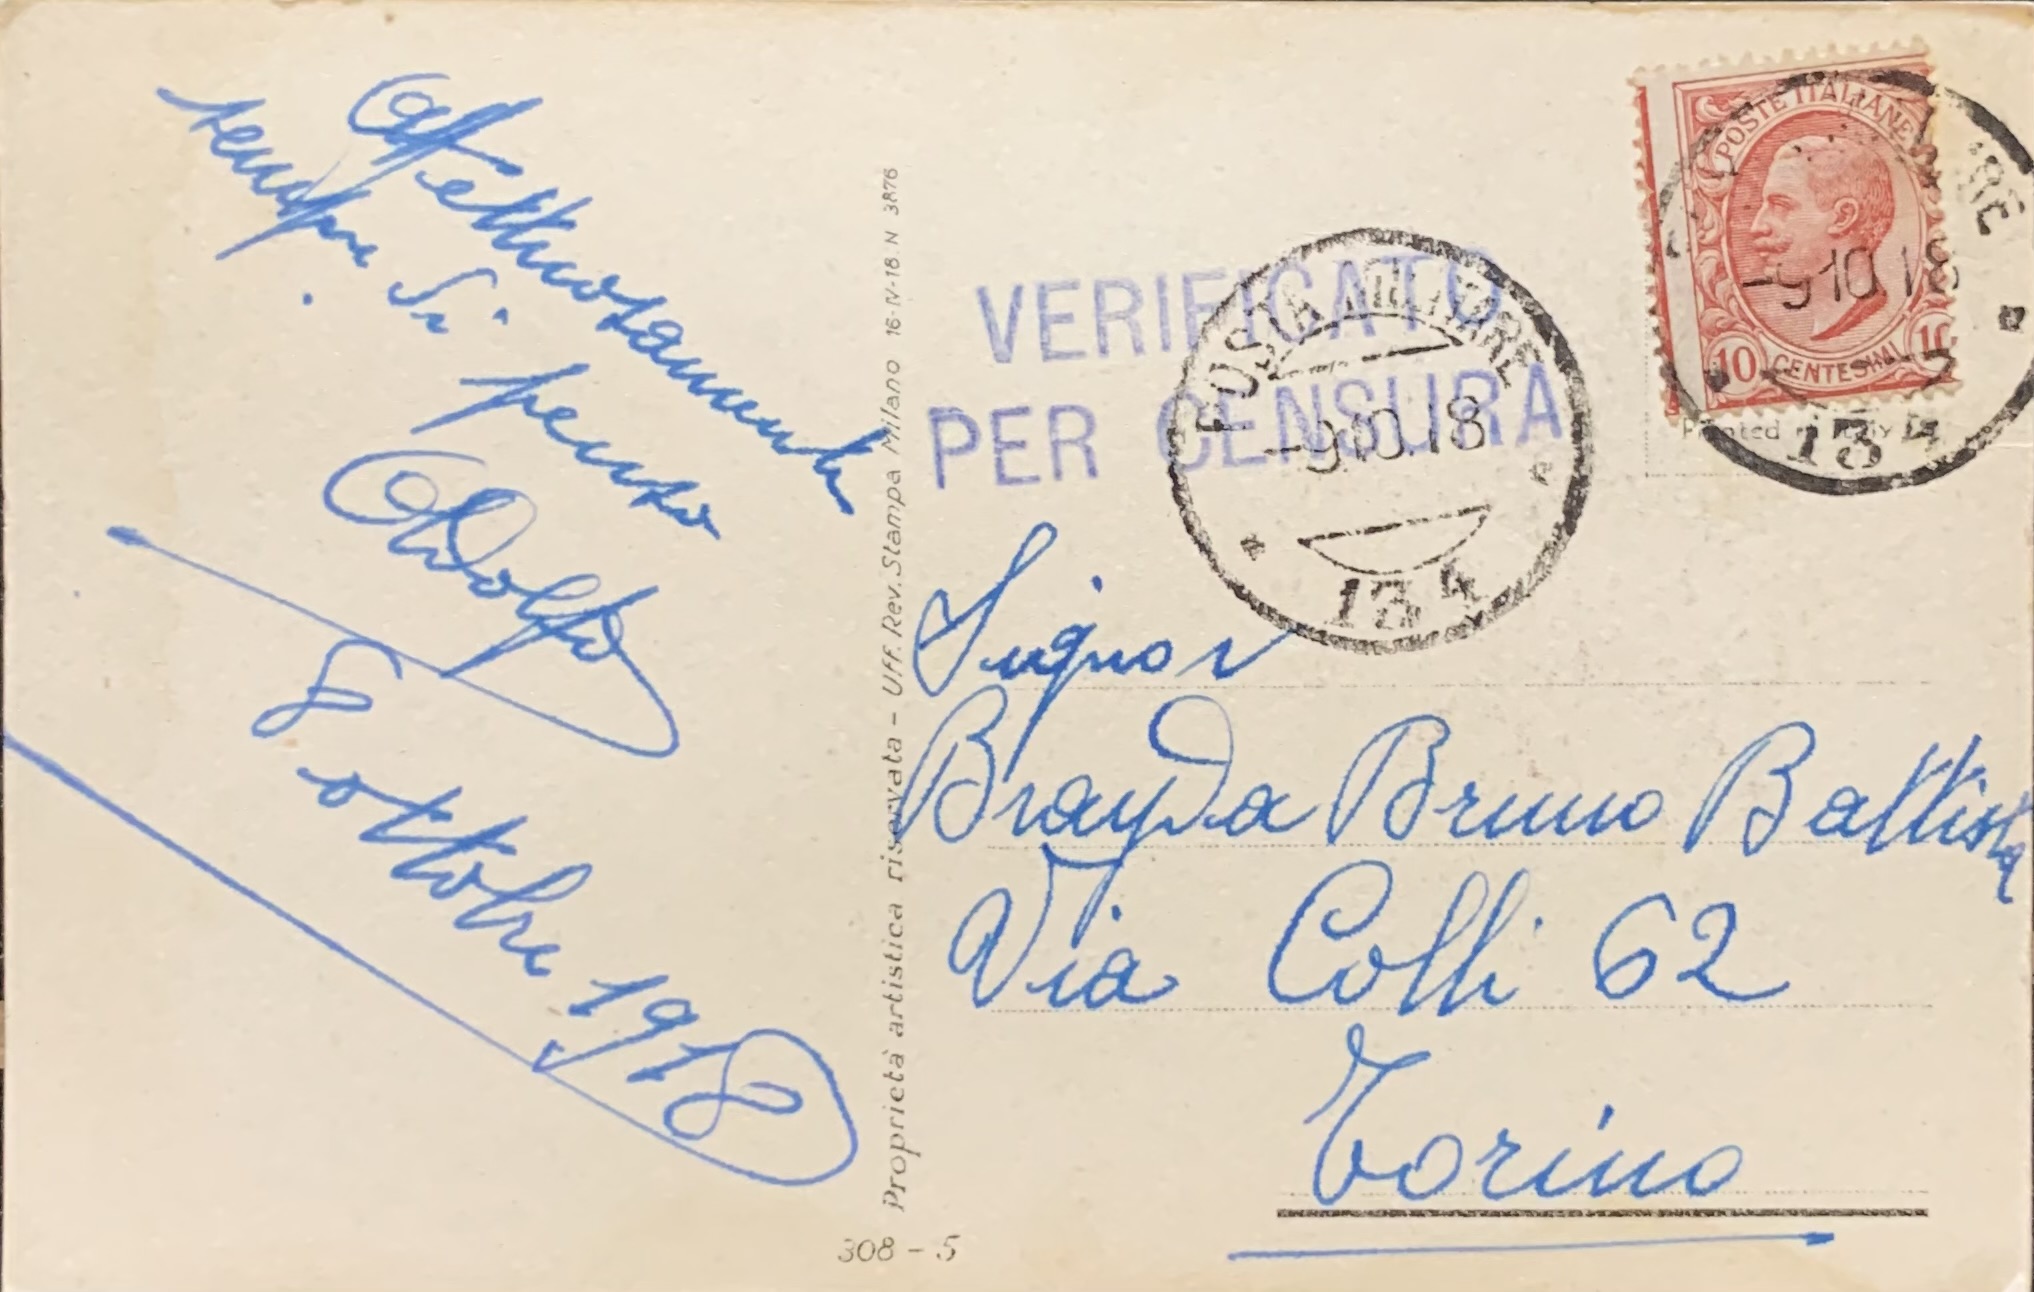 Affettuosamente
sempre Vi penso
Adolfo
8 ottobre 1918
Proprietà artistica riservata - Uff. Rev. Stampa Milano 16-IV-18. N 3876
308 - 5
VERIFICATO
PER CENSURA
POSTA MILITARE
-9.10.18
134
POSTE ITALIANE
10 CENTESIMI 10
-9.10.18
134
Printed in Italy
Signor
Brayda Bruno Battista
Via Colli 62
Torino